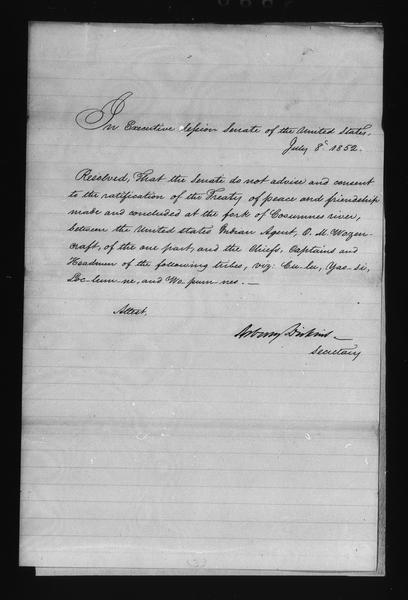 In Executive Session Senate of the United States,
July 8th 1852.
Resolved, That the Senate do not advise and consent
to the ratification of the Treaty of peace and friendship
made and concluded at the fork of Cosumnes river,
between the United States Indian Agent, O. M. Wozen-
craft, of the one part, and the Chiefs, Captains and
Headmen of the following tribes, viz: Cu-lu, Yas-si,
Loc-lum-ne, and Wo-pum-nes. —
Attest,
Asbury Dickins —
Secretary